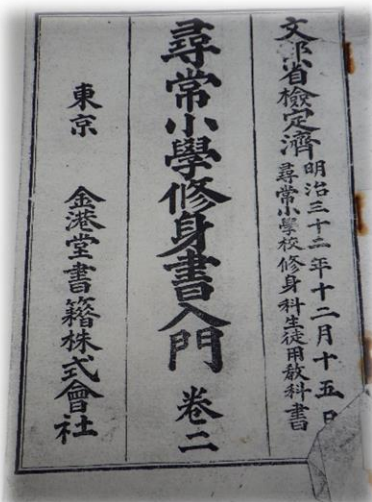 文部省檢定濟
明治三十二年十二月十五日
尋常小學校修身科生徒用教科書
尋常小學修身書入門 卷二
東京 金港堂書籍株式會社